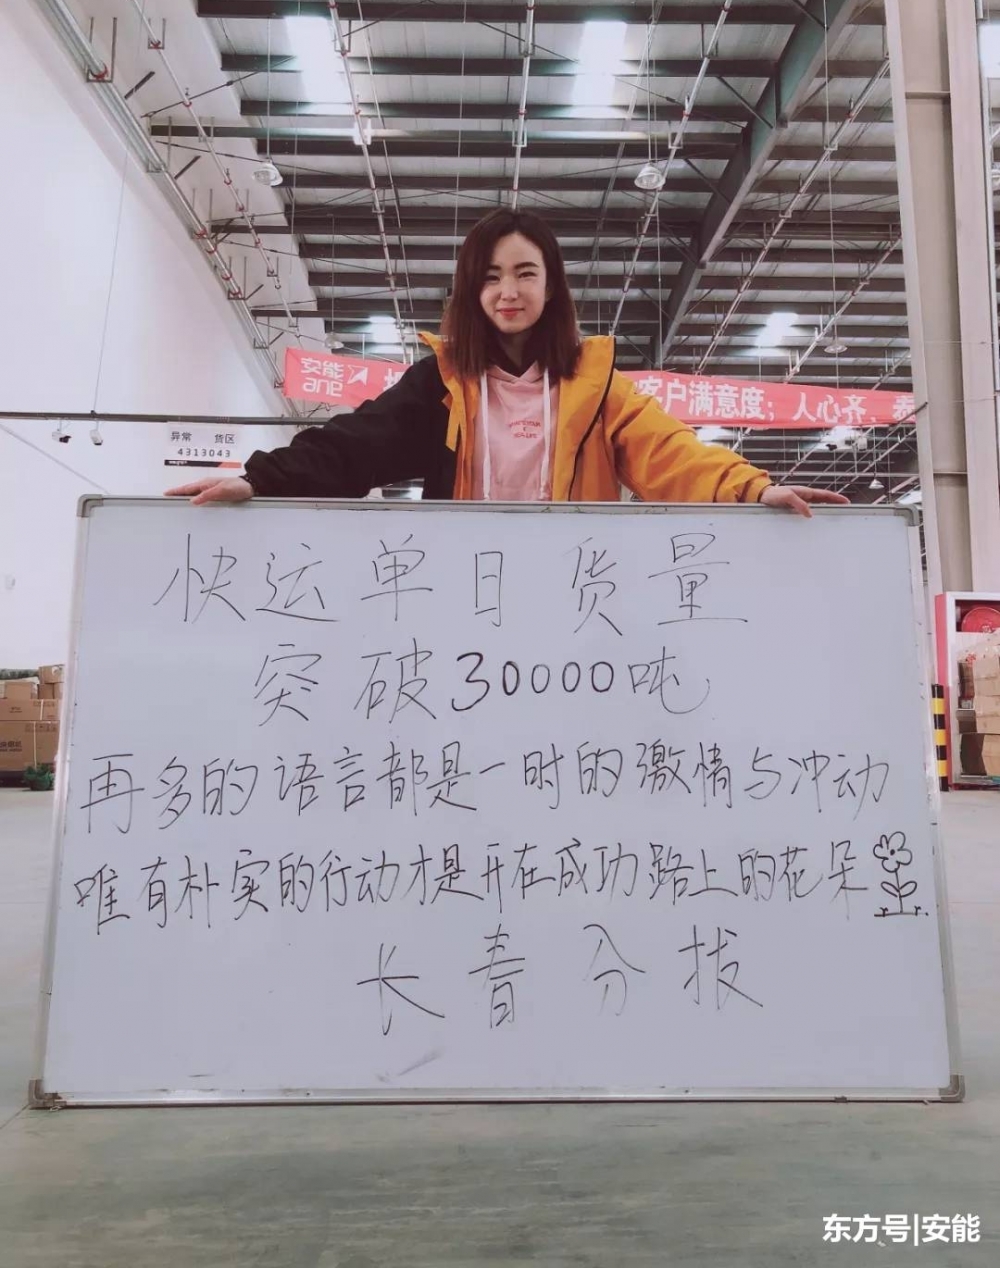 安能
ane
客户满意度；人心齐、
异常 货区
4313043
快运单日货量
突破30000吨
再多的语言都是一时的激情与冲动
唯有朴实的行动才是开在成功路上的花朵
长春分拨
东方号|安能